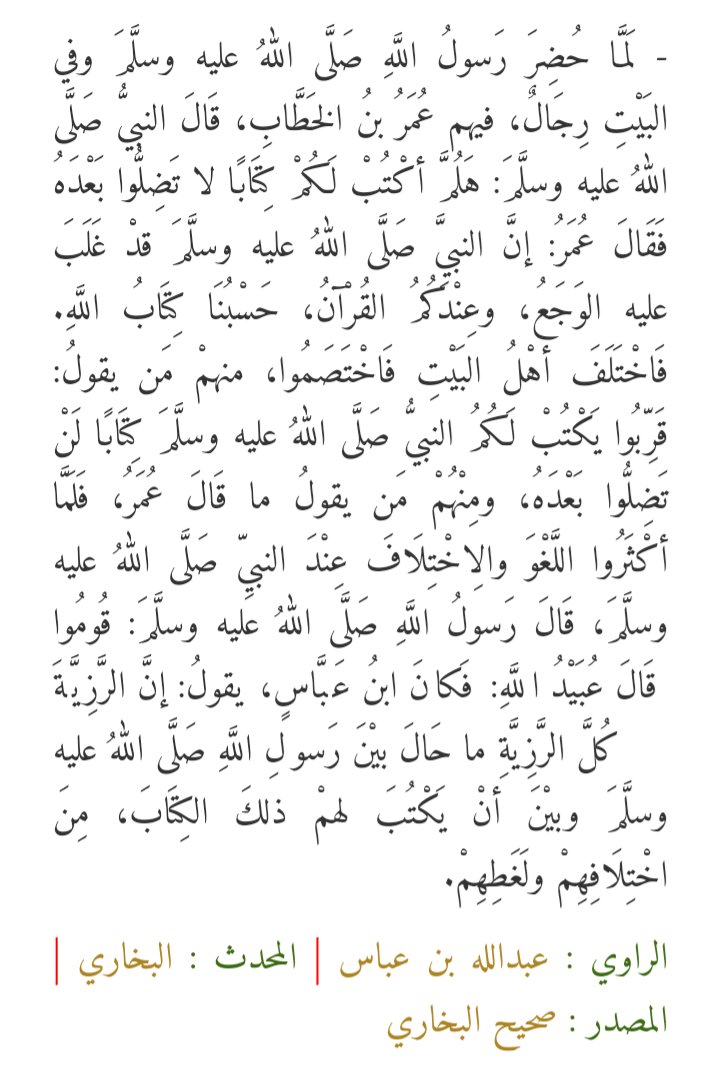 - لَمَّا حُضِرَ رَسولُ اللَّهِ صَلَّى اللهُ عليه وسلَّمَ وفي
البَيْتِ رِجَالٌ، فيهم عُمَرُ بنُ الخَطَّابِ، قَالَ النبيُّ صَلَّى
اللهُ عليه وسلَّمَ: هَلُمَّ أكْتُبْ لَكُمْ كِتَابًا لا تَضِلُّوا بَعْدَهُ
فَقَالَ عُمَرُ: إنَّ النبيَّ صَلَّى اللهُ عليه وسلَّمَ قدْ غَلَبَ
عليه الوَجَعُ، وعِنْدَكُمُ القُرْآنُ، حَسْبُنَا كِتَابُ اللَّهِ.
فَاخْتَلَفَ أهْلُ البَيْتِ فَاخْتَصَمُوا، منهمْ مَن يقولُ:
قَرِّبُوا يَكْتُبْ لَكُمُ النبيُّ صَلَّى اللهُ عليه وسلَّمَ كِتَابًا لَنْ
تَضِلُّوا بَعْدَهُ، ومِنْهُمْ مَن يقولُ ما قَالَ عُمَرُ، فَلَمَّا
أكْثَرُوا اللَّغْوَ والِاخْتِلَافَ عِنْدَ النبيِّ صَلَّى اللهُ عليه
وسلَّمَ، قَالَ رَسولُ اللَّهِ صَلَّى اللهُ عليه وسلَّمَ: قُومُوا
قَالَ عُبَيْدُ اللَّهِ: فَكانَ ابنُ عَبَّاسٍ، يقولُ: إنَّ الرَّزِيَّةَ
كُلَّ الرَّزِيَّةِ ما حَالَ بيْنَ رَسولِ اللَّهِ صَلَّى اللهُ عليه
وسلَّمَ وبيْنَ أنْ يَكْتُبَ لهمْ ذلكَ الكِتَابَ، مِنَ
اخْتِلَافِهِمْ ولَغَطِهِمْ.
الراوي : عبدالله بن عباس | المحدث : البخاري |
المصدر : صحيح البخاري